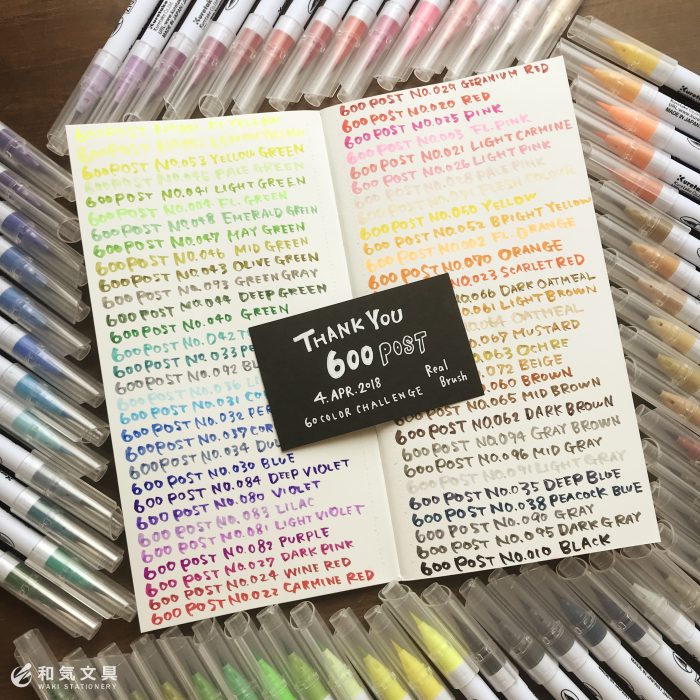 600 POST NO.053 YELLOW GREEN
600 POST NO.045 PALE GREEN
600 POST NO.041 LIGHT GREEN
600 POST NO.004 FL. GREEN
600 POST NO.048 EMERALD GREEN
600 POST NO.047 MAY GREEN
600 POST NO.046 MID GREEN
600 POST NO.043 OLIVE GREEN
600 POST NO.093 GREEN GRAY
600 POST NO.044 DEEP GREEN
600 POST NO.040 GREEN
600 POST NO.042
600 POST NO.033
600 POST NO.092
600 POST NO.036
600 POST NO.031
600 POST NO.032
600 POST NO.037
600 POST NO.034
600 POST NO.030 BLUE
600 POST NO.084 DEEP VIOLET
600 POST NO.080 VIOLET
600 POST NO.083 LILAC
600 POST NO.081 LIGHT VIOLET
600 POST NO.082 PURPLE
600 POST NO.027 DARK PINK
600 POST NO.024 WINE RED
600 POST NO.022 CARMINE RED
600 POST NO.029 GERANIUM RED
600 POST NO.020 RED
600 POST NO.025 PINK
600 POST NO.003 FL. PINK
600 POST NO.021 LIGHT CARMINE
600 POST NO.026 LIGHT PINK
600 POST NO.028 PALE PINK
600 POST FLESH COLOUR
600 POST NO.050 YELLOW
600 POST NO.052 BRIGHT YELLOW
600 POST NO.002 FL. ORANGE
600 POST NO.070 ORANGE
600 POST NO.023 SCARLET RED
NO.066 DARK OATMEAL
NO.061 LIGHT BROWN
NO.064 OATMEAL
NO.067 MUSTARD
NO.063 OCHRE
072 BEIGE
060 BROWN
NO.065 MID BROWN
600 POST NO.062 DARK BROWN
600 POST NO.094 GRAY BROWN
600 POST NO.096 MID GRAY
600 POST NO.091 LIGHT GRAY
600 POST NO.035 DEEP BLUE
600 POST NO.038 PEACOCK BLUE
600 POST NO.090 GRAY
600 POST NO.095 DARK GRAY
600 POST NO.010 BLACK
THANK YOU
600 POST
4.APR.2018
60 COLOR CHALLENGE
Real
Brush
和気文具
WAKI STATIONERY